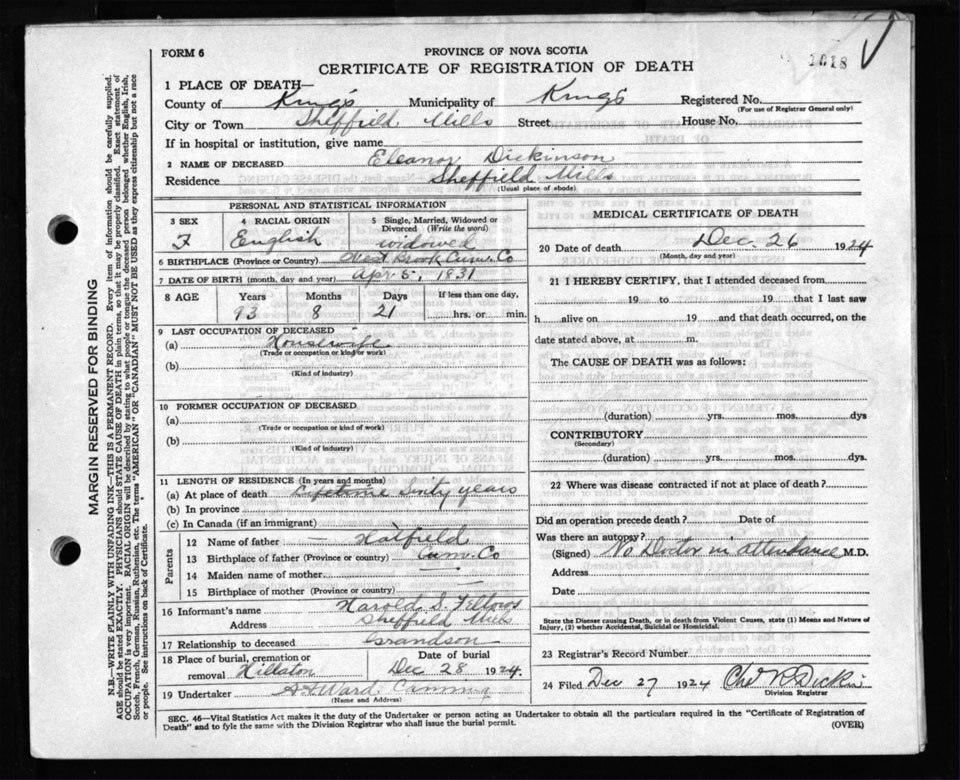 FORM 6
PROVINCE OF NOVA SCOTIA
1018
CERTIFICATE OF REGISTRATION OF DEATH
1 PLACE OF DEATH—
County of King's Municipality of King's Registered No.
(For use of Registrar General only)
City or Town Sheffield Mills Street House No.
If in hospital or institution, give name
2 NAME OF DECEASED Eleanor Dickinson
Residence Sheffield Mills
(Usual place of abode)
PERSONAL AND STATISTICAL INFORMATION
3 SEX 4 RACIAL ORIGIN 5 Single, Married, Widowed or
Divorced (Write the word)
F English widowed
6 BIRTHPLACE (Province or Country) West Brook Cum. Co
7 DATE OF BIRTH (month, day and year) Apr 5, 1831
8 AGE Years Months Days If less than one day,
93 8 21 hrs. or min.
9 LAST OCCUPATION OF DECEASED
(a) Housewife
(Trade or occupation or kind of work)
(b)
(Kind of industry)
10 FORMER OCCUPATION OF DECEASED
(a)
(Trade or occupation or kind of work)
(b)
(Kind of industry)
11 LENGTH OF RESIDENCE (In years and months)
(a) At place of death Lifetime Sixty years
(b) In province
(c) In Canada (if an immigrant)
Parents
12 Name of father — Hatfield
13 Birthplace of father (Province or country) Cum. Co
14 Maiden name of mother —
15 Birthplace of mother (Province or country) —
16 Informant's name Harold S. Fellows
Address Sheffield Mills
17 Relationship to deceased Grandson
18 Place of burial, cremation or Date of burial
removal Hillaton Dec 28 1924.
19 Undertaker Ward Canning
(Name and Address)
MEDICAL CERTIFICATE OF DEATH
20 Date of death Dec. 26 1924
(Month, day and year)
21 I HEREBY CERTIFY, that I attended deceased from
19 to 19 that I last saw
h alive on 19 and that death occurred, on the
date stated above, at m.
The CAUSE OF DEATH was as follows:
(duration) yrs. mos. dys
CONTRIBUTORY
(Secondary)
(duration) yrs. mos. dys.
22 Where was disease contracted if not at place of death?
Did an operation precede death? Date of
Was there an autopsy?
(Signed) No Doctor in attendance M.D.
Address
Date
State the Disease causing Death, or in death from Violent Causes, state (1) Means and Nature of
Injury, (2) whether Accidental, Suicidal or Homicidal.
23 Registrar's Record Number
24 Filed Dec 27 1924
Division Registrar
SEC. 46—Vital Statistics Act makes it the duty of the Undertaker or person acting as Undertaker to obtain all the particulars required in the "Certificate of Registration of
Death" and to fyle the same with the Division Registrar who shall issue the burial permit.
(OVER)
MARGIN RESERVED FOR BINDING
N.B.—WRITE PLAINLY WITH UNFADING INK—THIS IS A PERMANENT RECORD. Every item of information should be carefully supplied.
AGE should be stated EXACTLY. PHYSICIANS should STATE CAUSE OF DEATH in plain terms, so that it may be properly classified. Exact statement of
OCCUPATION is very important. RACIAL ORIGIN will be described by stating to what people or tongue the deceased person belonged whether English, Irish,
Scotch, French, German, Russian, Ruthenian, etc. The terms "AMERICAN" OR "CANADIAN" MUST NOT BE USED as they express citizenship but not a race
or people. See instructions on back of Certificate.